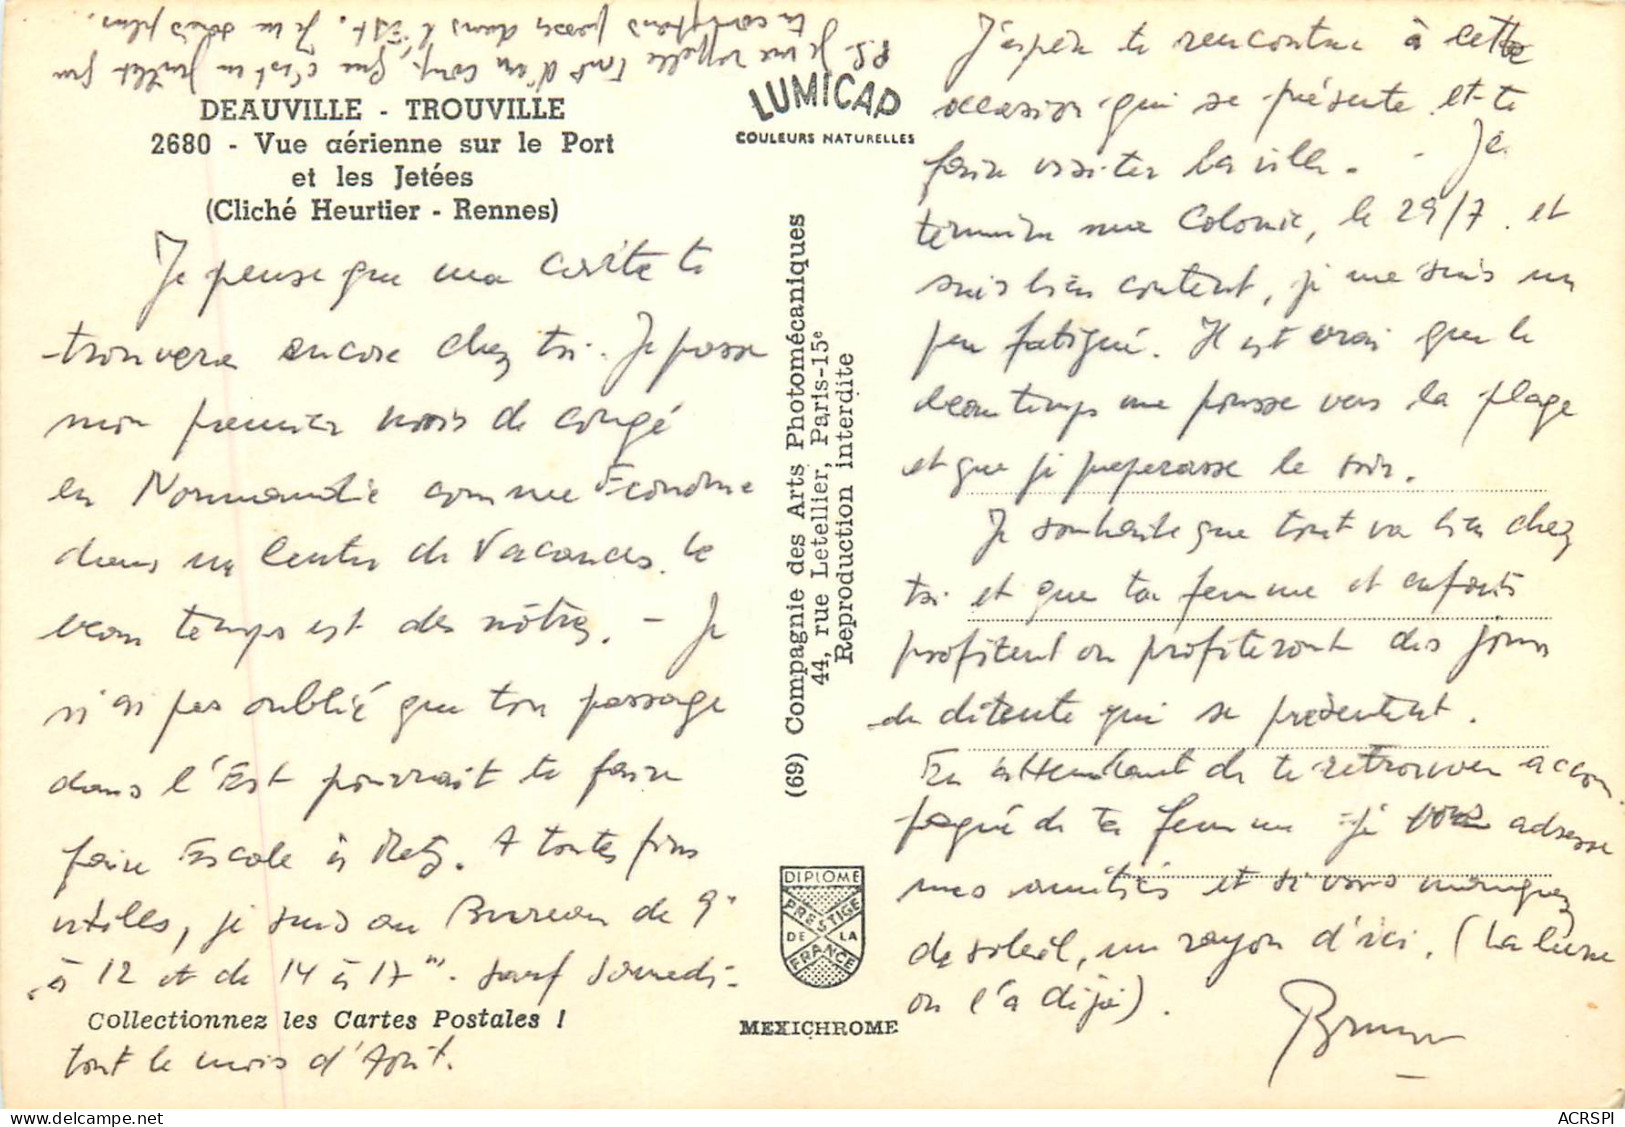 P.S. Je me rappelle tout d'un coup, que c'est en Juillet que
tu comptais passer dans l'Est. Je ne sais plus.
DEAUVILLE - TROUVILLE
2680 - Vue aérienne sur le Port
et les Jetées
(Cliché Heurtier - Rennes)
Je pense que ma carte te
trouvera encore chez toi. Je passe
mon premier mois de congé
en Normandie comme Econome
dans un Centre de Vacances. Le
beau temps est des nôtres. - Je
n'ai pas oublié que ton passage
dans l'Est pourrait te faire
faire Escale à Metz. A toutes fins
utiles, je suis au Bureau de 9h
à 12 et de 14 à 17h. sauf Samedi -
Collectionnez les Cartes Postales !
tout le mois d'Août.
LUMICAP
COULEURS NATURELLES
(69) Compagnie des Arts Photomécaniques
44, rue Letellier, Paris-15e
Reproduction interdite
DIPLOME
PRESTIGE
DE LA
FRANCE
MEXICHROME
J'espère te rencontrer à cette
occasion qui se présente et te
faire visiter la ville. - Je
termine ma Colonie, le 29/7. et
suis bien content, je me suis un
peu fatigué. Il est vrai que le
beau temps me pousse vers la plage
et que je paperasse le soir.
Je souhaite que tout va bien chez
toi et que ta femme et enfants
profitent ou profiteront des jours
de détente qui se présentent.
En attendant de te retrouver accom
pagné de ta femme je vous adresse
mes amitiés et si vous manquez
de soleil, un rayon d'ici. (La lune
on l'a déjà).
Bruno
ACRSPI